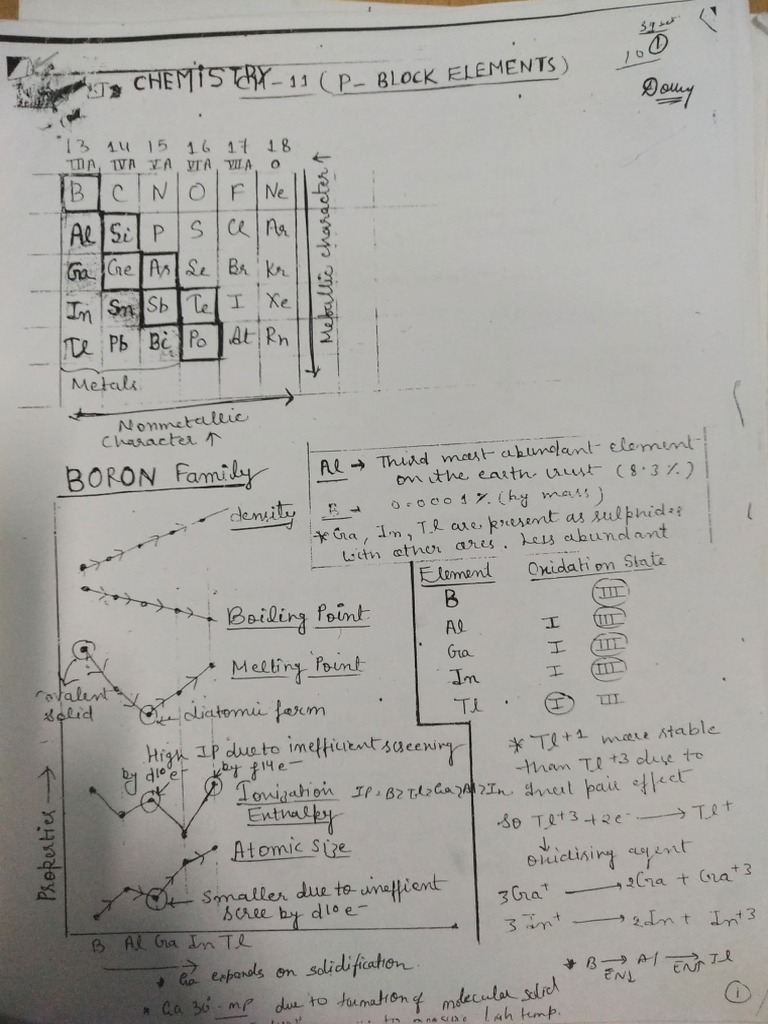 CHEMISTRY
CH-11 (P-BLOCK ELEMENTS)
10 ①
13 14 15 16 17 18
IIIA IVA VA VIA VIIA 0
B C N O F Ne
Al Si P S Cl Ar
Ga Ge As Se Br Kr
In Sn Sb Te I Xe
Tl Pb Bi Po At Rn
Metallic character ↑
Metals
Nonmetallic
Character ↑
BORON Family
Al → Third most abundant element
on the earth crust (8.3%)
B → 0.0001% (by mass)
* Ga, In, Tl are present as sulphides
with other ores. Less abundant
density
Boiling Point
Melting Point
covalent
solid
diatomic form
High IP due to inefficient screening
by d10e-
by f14e-
Ionisation
Enthalpy
IP, B>Tl>Ga>Al>In
Atomic Size
Smaller due to inefficient
scree by d10e-
Properties →
B Al Ga In Tl
Element Oxidation State
B III
Al I III
Ga I III
In I III
Tl I III
* Tl+1 more stable
than Tl+3 due to
Inert pair effect
so Tl+3 + 2e- → Tl+
↓
oxidising agent
3Ga+ → 2Ga + Ga+3
3In+ → 2In + In+3
* B → Al → Tl
EN↓ EN↑
* Ga expands on solidification.
* Ga 30 mp due to formation of molecular solid
①